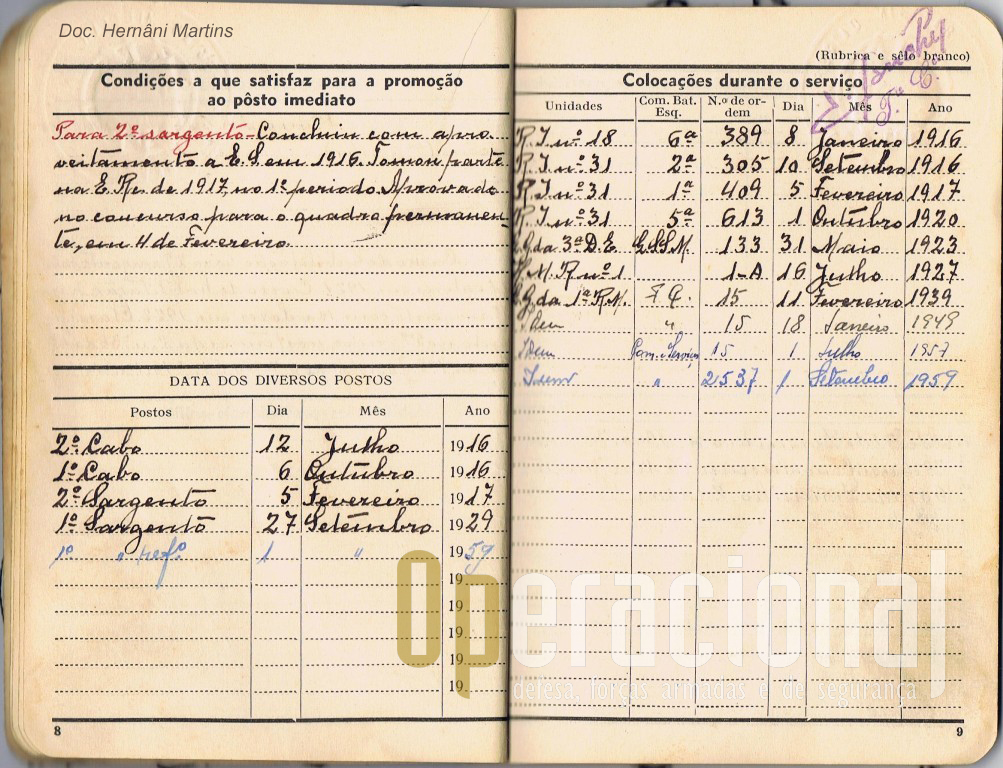 Doc. Hernâni Martins
Condições a que satisfaz para a promoção
ao pôsto imediato
Para 2º sargento - Concluiu com apro
veitamento a E. S. em 1916. Tomou parte
na E. Re. de 1917 no 1º periodo. Aprovado
no concurso para o quadro permanen
te, em 4 de Fevereiro.
DATA DOS DIVERSOS POSTOS
Postos Dia Mês Ano
2º Cabo 12 Julho 1916
1º Cabo 6 Outubro 1916
2º Sargento 5 Fevereiro 1917
1º Sargento 27 Setembro 1929
1º " refº 1 " 1959
19
19
19
19
19
8
(Rubrica e sêlo branco)
Colocações durante o serviço
Unidades Com. Bat. Esq. N.º de ordem Dia Mês Ano
R. I. nº 18 6ª 389 8 Janeiro 1916
R. I. nº 31 2ª 305 10 Setembro 1916
R. I. nº 31 1ª 409 5 Fevereiro 1917
R. I. nº 31 5ª 613 1 Outubro 1920
Q. G. da 3ª D. E. 133 31 Maio 1923
nº 1 1-A 16 Julho 1927
Q. G. da 1ª R. M. 15 11 Fevereiro 1939
Idem " 15 18 Janeiro 1949
Idem 15 1 Julho 1957
Idem " 2537 1 Setembro 1959
9
Operacional
defesa, forças armadas e de segurança